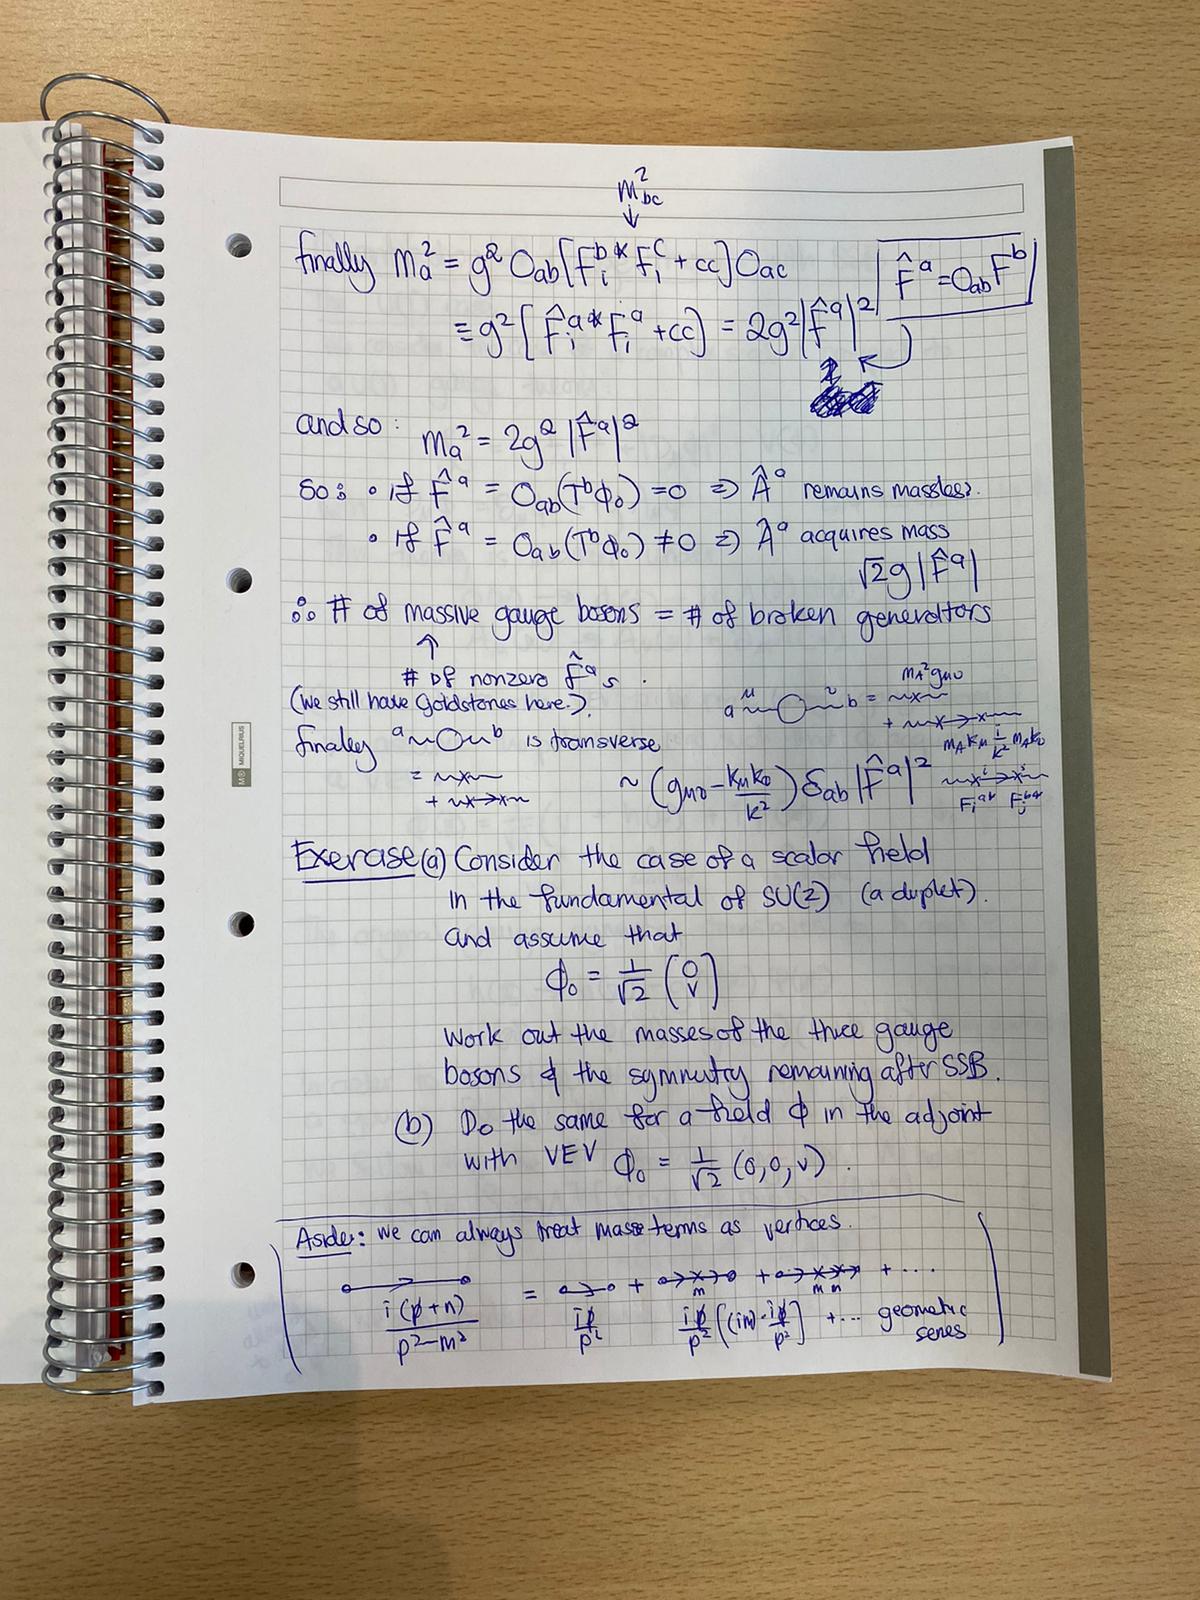 m²_bc
↓
finally m_a² = g² O_ab [F_i^b* F_i^c + cc] O_ac
F̂^a = O_ab F^b
≡ g² [F̂_i^a* F_i^a + cc] = 2g² |F̂^a|²
and so : m_a² = 2g² |F̂^a|²
So: • if F̂^a = O_ab (T^b ϕ_0) = 0 ⇒ Â^a remains massless.
• if F̂^a = O_ab (T^b ϕ_0) ≠ 0 ⇒ Â^a acquires mass
√2 g |F̂^a|
∴ # of massive gauge bosons = # of broken generators
↑
# of nonzero F̂^a s .
(we still have Goldstones here.)
m_A² g_μν
a μ ~O~ ν b = ~x~
+ ~x→x~
m_A k_μ i/k² m_A k_ν
finally a ~O~ b is transverse
= ~x~
+ ~x→x~
~ (g_μν - k_μ k_ν / k²) δ_ab |F̂^a|²
Exercise (a) Consider the case of a scalar field
in the fundamental of SU(2) (a duplet).
and assume that
ϕ_0 = 1/√2 (0 v)
Work out the masses of the three gauge
bosons & the symmetry remaining after SSB.
(b) Do the same for a field ϕ in the adjoint
with VEV ϕ_0 = 1/√2 (0,0,v) .
Aside: we can always treat mass terms as vertices.
i(p̸+m) / p²-m² = ip̸/p² + ip̸/p² [(im)·ip̸/p²] + ... geometric
series
MIQUELRIUS